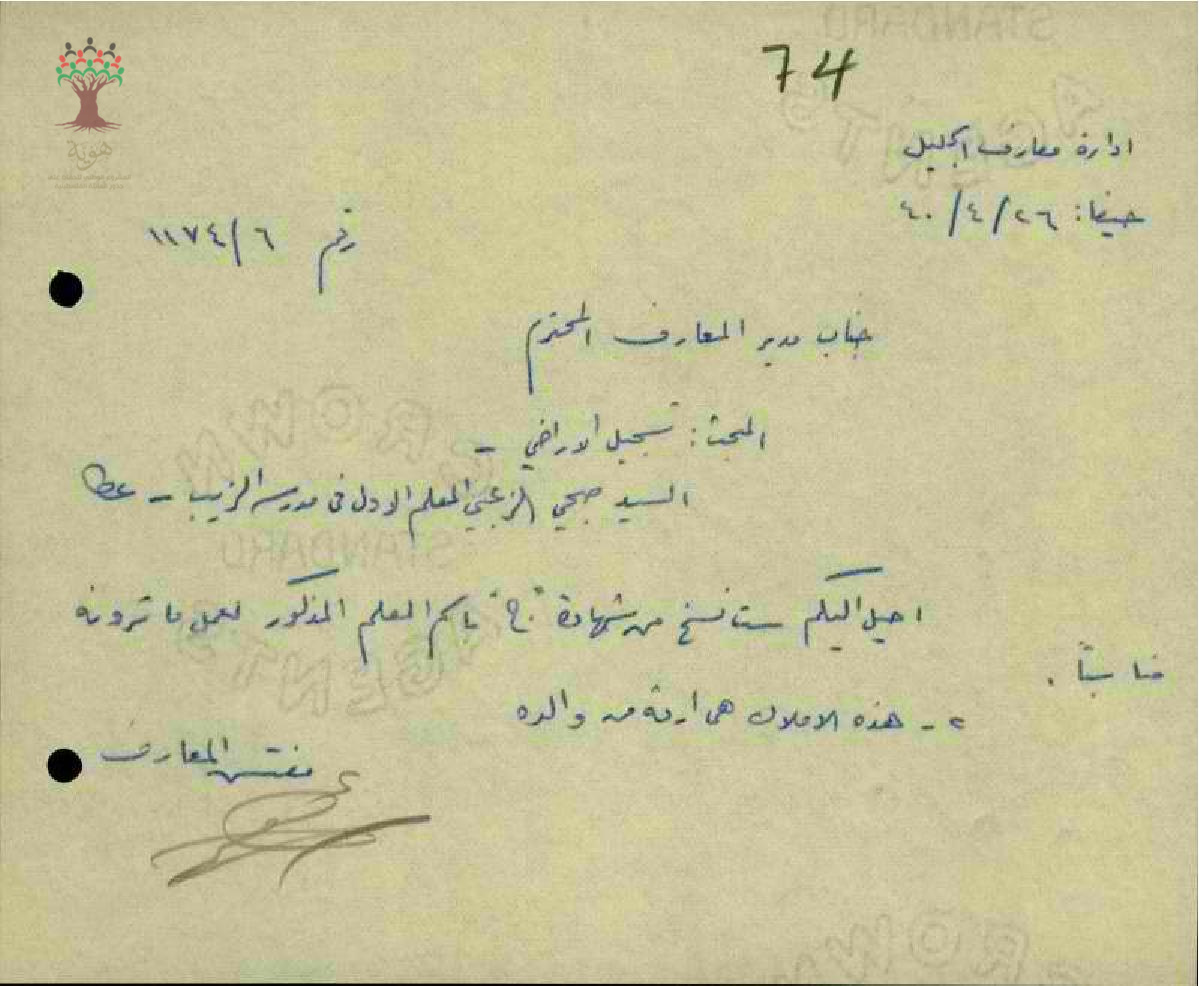 74
ادارة معارف الجليل
حيفا: ٢٦/٤/٤٠
رقم ٦/١١٧٤
جناب مدير المعارف المحترم
المبحث: تسجيل الاراضي -
السيد صبحي الزعبي المعلم الاول في مدرسة الزيب - عكا
احيل اليكم ست نسخ من شهادة "ج" باسم المعلم المذكور لعمل ما ترونه
مناسباً .
٢ - هذه الاملاك هي ارثه من والده
مفتش المعارف
هوية
STANDARD
CROWN
AGENTS